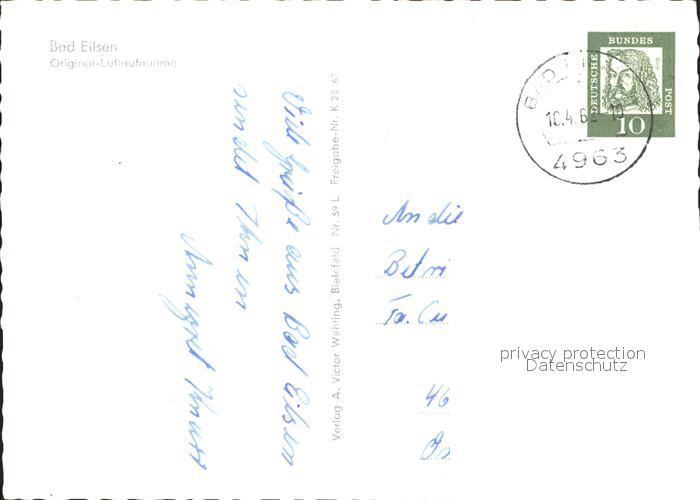 Bad Eilsen
Original-Luftaufnahme
Viele Grüße aus Bad Eilsen
sendet Ihnen
Annegret
Verlag A. Victor Wehling, Bielefeld Nr. 59 L Freigabe-Nr. K 25 67
DEUTSCHE
BUNDES
POST
10
BAD
10.4.6
4963
An die
Betri
Fa. Cu
privacy protection
Datenschutz
46